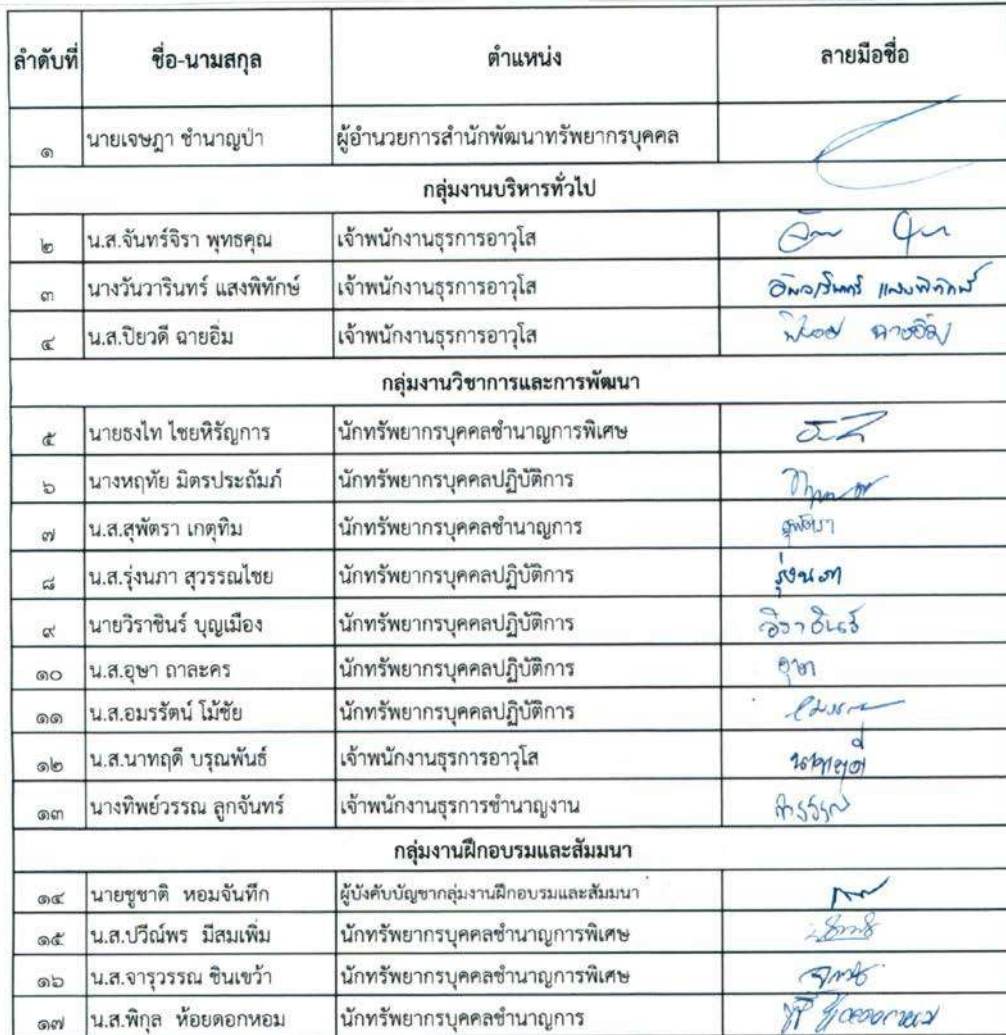 ลำดับที่ ชื่อ-นามสกุล ตำแหน่ง ลายมือชื่อ
๑ นายเจษฎา ชำนาญป่า ผู้อำนวยการสำนักพัฒนาทรัพยากรบุคคล
กลุ่มงานบริหารทั่วไป
๒ น.ส.จันทร์จิรา พุทธคุณ เจ้าพนักงานธุรการอาวุโส
๓ นางวันวารินทร์ แสงพิทักษ์ เจ้าพนักงานธุรการอาวุโส วันวารินทร์ แสงพิทักษ์
๔ น.ส.ปิยวดี ฉายอิ่ม เจ้าพนักงานธุรการอาวุโส ปิยวดี ฉายอิ่ม
กลุ่มงานวิชาการและการพัฒนา
๕ นายธงไท ไชยหิรัญการ นักทรัพยากรบุคคลชำนาญการพิเศษ
๖ นางหฤทัย มิตรประถัมภ์ นักทรัพยากรบุคคลปฏิบัติการ
๗ น.ส.สุพัตรา เกตุทิม นักทรัพยากรบุคคลชำนาญการ สุพัตรา
๘ น.ส.รุ่งนภา สุวรรณไชย นักทรัพยากรบุคคลปฏิบัติการ รุ่งนภา
๙ นายวิราชินร์ บุญเมือง นักทรัพยากรบุคคลปฏิบัติการ วิราชินร์
๑๐ น.ส.อุษา ถาละคร นักทรัพยากรบุคคลปฏิบัติการ อุษา
๑๑ น.ส.อมรรัตน์ โม้ชัย นักทรัพยากรบุคคลปฏิบัติการ
๑๒ น.ส.นาทฤดี บรุณพันธ์ เจ้าพนักงานธุรการอาวุโส นาทฤดี
๑๓ นางทิพย์วรรณ ลูกจันทร์ เจ้าพนักงานธุรการชำนาญงาน
กลุ่มงานฝึกอบรมและสัมมนา
๑๔ นายชูชาติ หอมจันทึก ผู้บังคับบัญชากลุ่มงานฝึกอบรมและสัมมนา
๑๕ น.ส.ปวีณ์พร มีสมเพิ่ม นักทรัพยากรบุคคลชำนาญการพิเศษ
๑๖ น.ส.จารุวรรณ ชินเขว้า นักทรัพยากรบุคคลชำนาญการพิเศษ
๑๗ น.ส.พิกุล ห้อยดอกหอม นักทรัพยากรบุคคลชำนาญการ